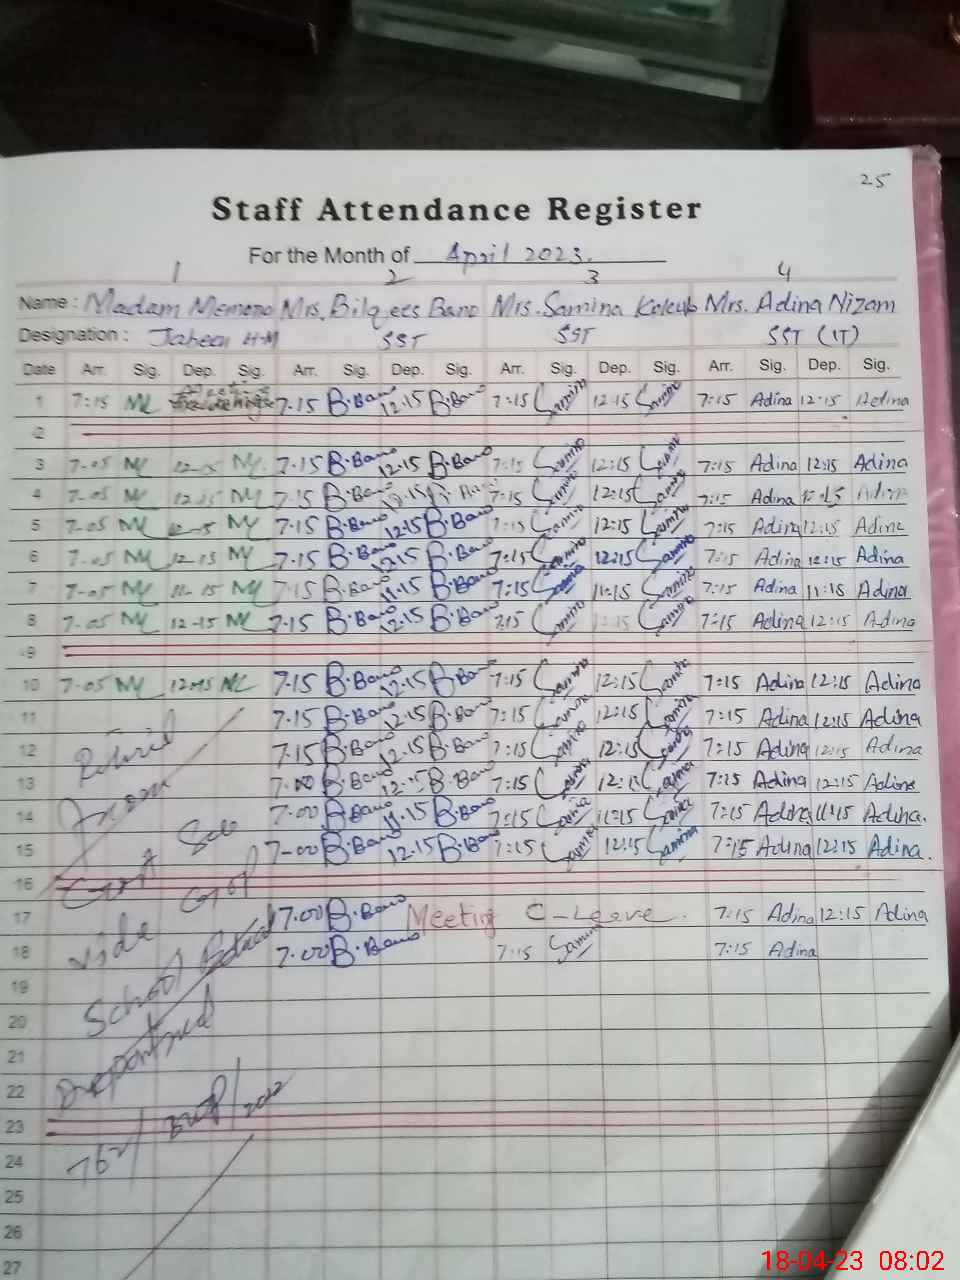 25
Staff Attendance Register
For the Month of April 2023.
1 2 3 4
Name : Madam Memona Mrs. Bilqees Bano Mrs. Samina Mrs. Adina Nizam
Designation : H-M SST SST SST (IT)
Date Arr. Sig. Dep. Sig. Arr. Sig. Dep. Sig. Arr. Sig. Dep. Sig. Arr. Sig. Dep. Sig.
1 7:15 7.15 B.Bano 12.15 B.Bano 7:15 Samina 12:15 Samina 7:15 Adina 12:15 Adina
2
3 7-05 12-15 7.15 B.Bano 12.15 B.Bano 7:15 Samina 12:15 Samina 7:15 Adina 12:15 Adina
4 7-05 12-15 7.15 B.Bano 12.15 7:15 Samina 12:15 Samina 7:15 Adina 12:15 Adina
5 7-05 7.15 B.Bano 12.15 B.Bano 7:15 Samina 12:15 Samina 7:15 Adina 12:15 Adina
6 7-05 12-15 7.15 B.Bano 12.15 B.Bano 7:15 Samina 12:15 Samina 7:15 Adina 12:15 Adina
7 7-05 11-15 7.15 B.Bano 11.15 B.Bano 7:15 Samina 11:15 Samina 7:15 Adina 11:15 Adina
8 7-05 12-15 7.15 B.Bano 12.15 B.Bano 7:15 Samina 12:15 Samina 7:15 Adina 12:15 Adina
9
10 7-05 12-15 7.15 B.Bano 12.15 B.Bano 7:15 Samina 12:15 Samina 7:15 Adina 12:15 Adina
11 7.15 B.Bano 12.15 B.Bano 7:15 Samina 12:15 Samina 7:15 Adina 12:15 Adina
12 7.15 B.Bano 12.15 B.Bano 7:15 Samina 12:15 Samina 7:15 Adina 12:15 Adina
13 from 7.00 B.Bano 12.15 B.Bano 7:15 Samina 12:15 Samina 7:15 Adina 12:15 Adina
14 7.00 B.Bano 11.15 B.Bano 7:15 Samina 11:15 Samina 7:15 Adina 11:15 Adina.
15 7-00 B.Bano 12.15 B.Bano 7:15 Samina 12:15 Samina 7:15 Adina 12:15 Adina.
16 Govt
17 vide 7.00 B.Bano Meeting C-Leave. 7:15 Adina 12:15 Adina
18 School 7.00 B.Bano 7:15 Samina 7:15 Adina
19
20
21
22
23
24
25
26
27
18-04-23 08:02